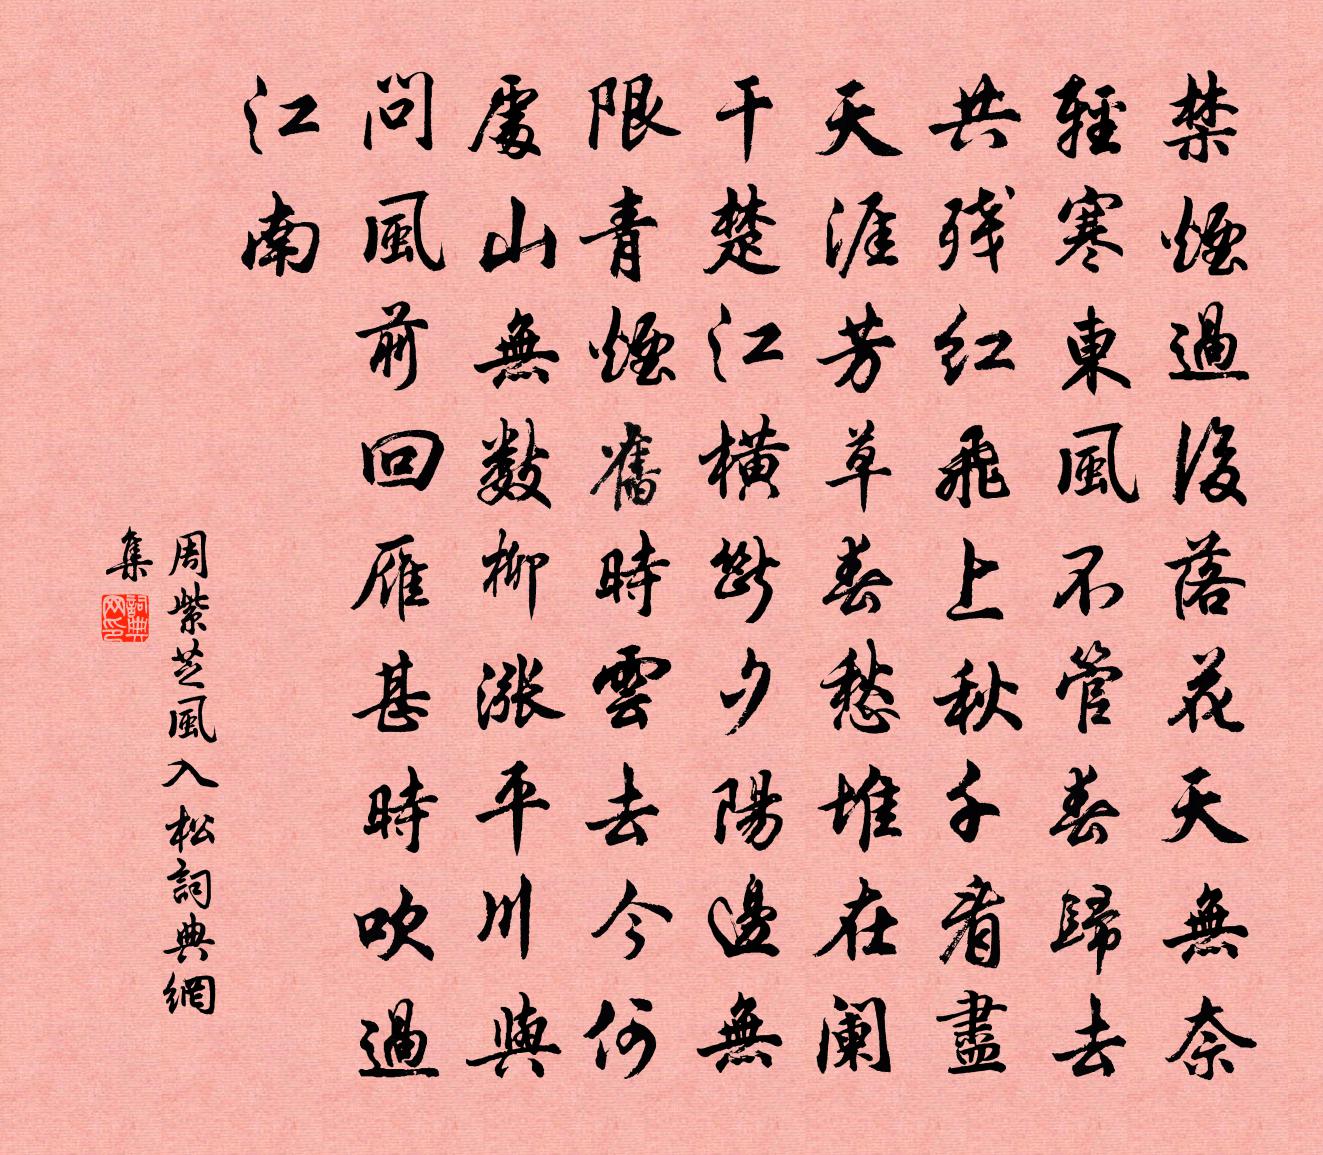 禁煙過後落花天無奈
輕寒東風不管春歸去
共残紅飛上秋千看盡
天涯芳草春愁堆在闌
干楚江橫斷夕陽邊無
限青煙舊時雲去今何
處山無數柳漲平川與
問風前回雁甚時吹過
江南
周紫芝風入松詞典網
集
詞典网印